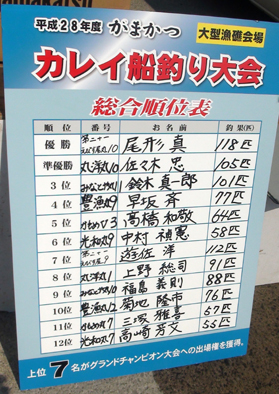 平成28年度 がまかつ
大型漁礁会場
カレイ船釣り大会
総合順位表
順位 番号 お名前 釣果(匹)
優勝 10 尾形 真 118匹
準優勝 丸洋丸10 佐々木 忠 105匹
3位 みなと丸11 鈴木 真一郎 101匹
4位 豊漁丸9 早坂 斉 77匹
5位 3 高橋 和敬 64匹
6位 光和丸9 中村 禎憲 58匹
7位 9 遊佐 洋 112匹
8位 丸洋丸1 上野 総司 91匹
9位 みなと丸10 福島 義則 88匹
10位 豊漁丸12 菊地 隆市 76匹
11位 7 三塚 雅喜 57匹
12位 光和丸7 高崎 芳文 55匹
上位7名がグランドチャンピオン大会への出場権を獲得。